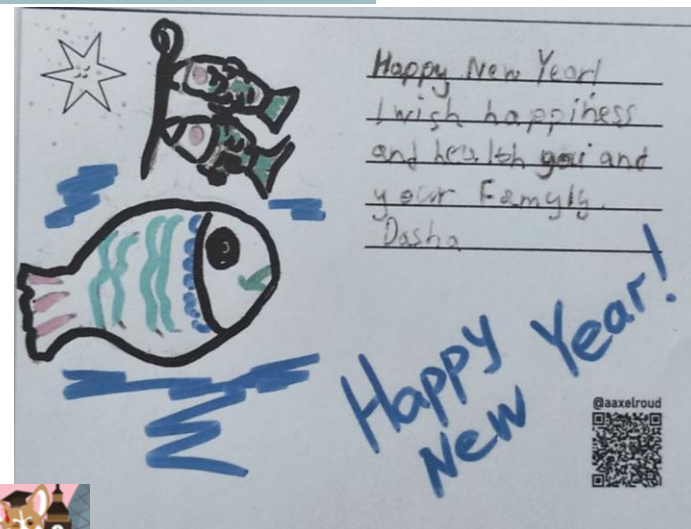 Happy New Year!
I wish happiness
and health you and
your Famyly.
Dasha
Happy
New Year!
@aaxelroud